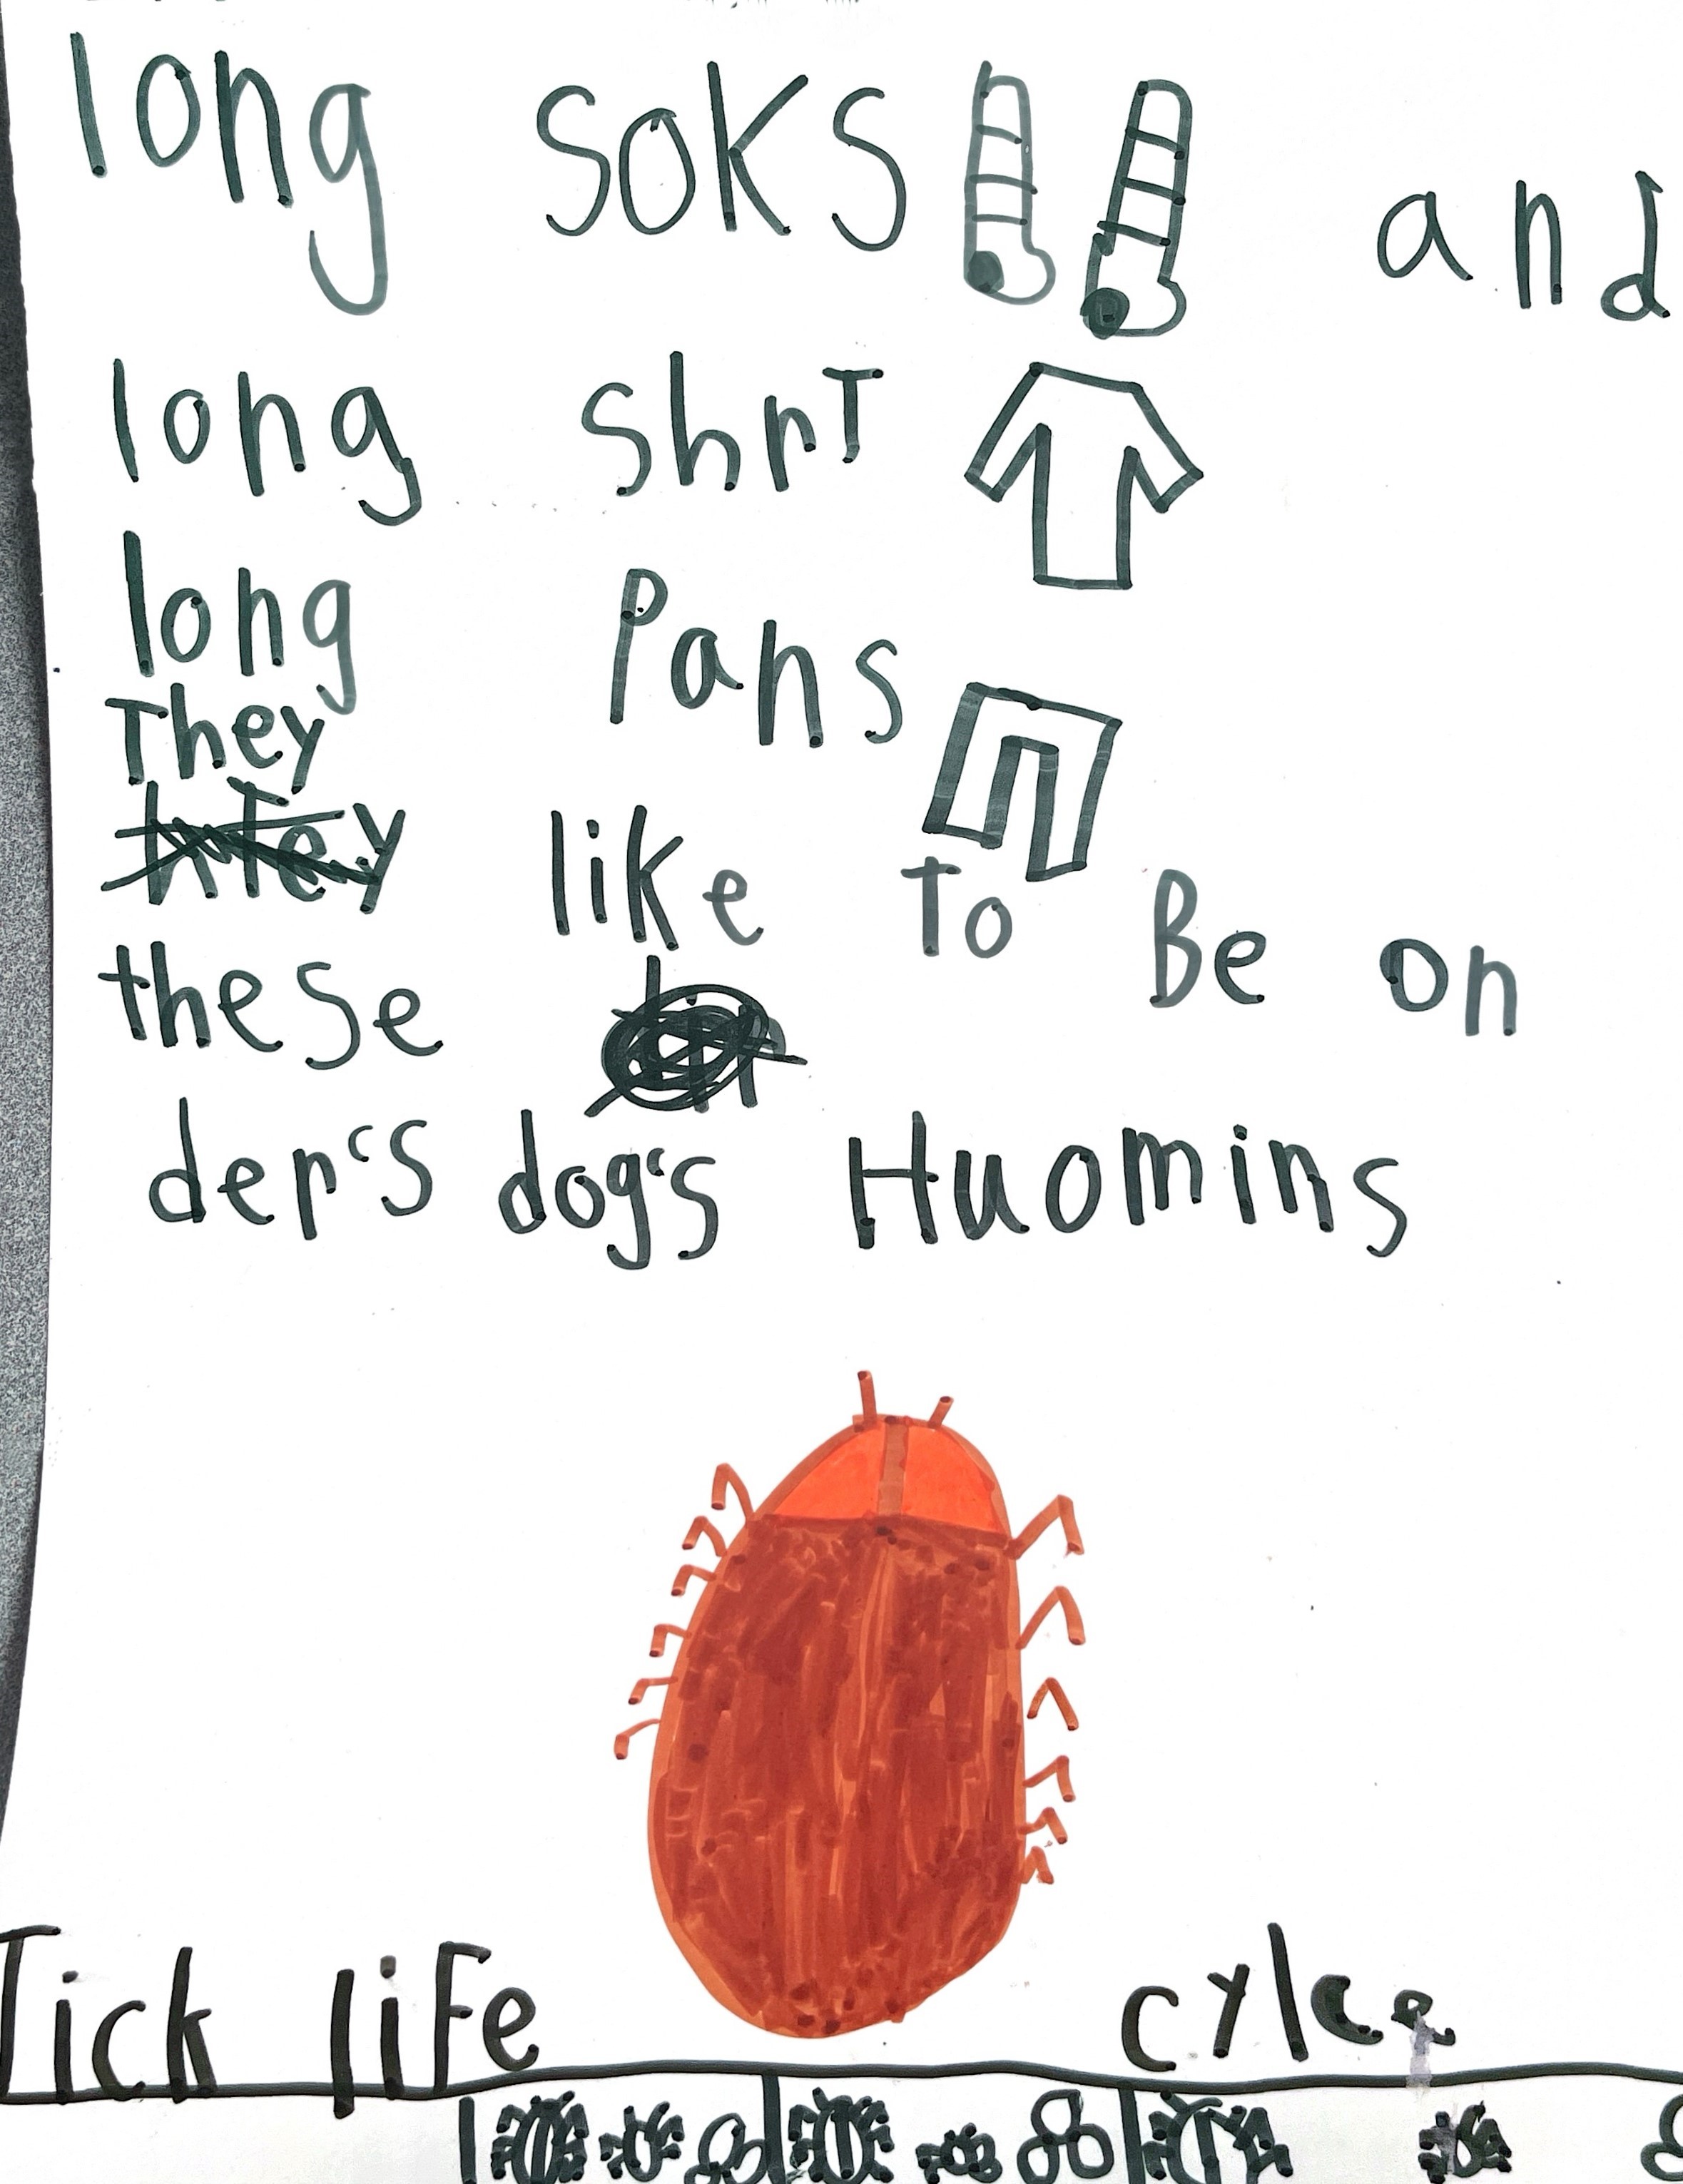 long soks and
long shrT
long Pans
They
like To Be on
these
der's dog's Huomins
Tick liFe cylce